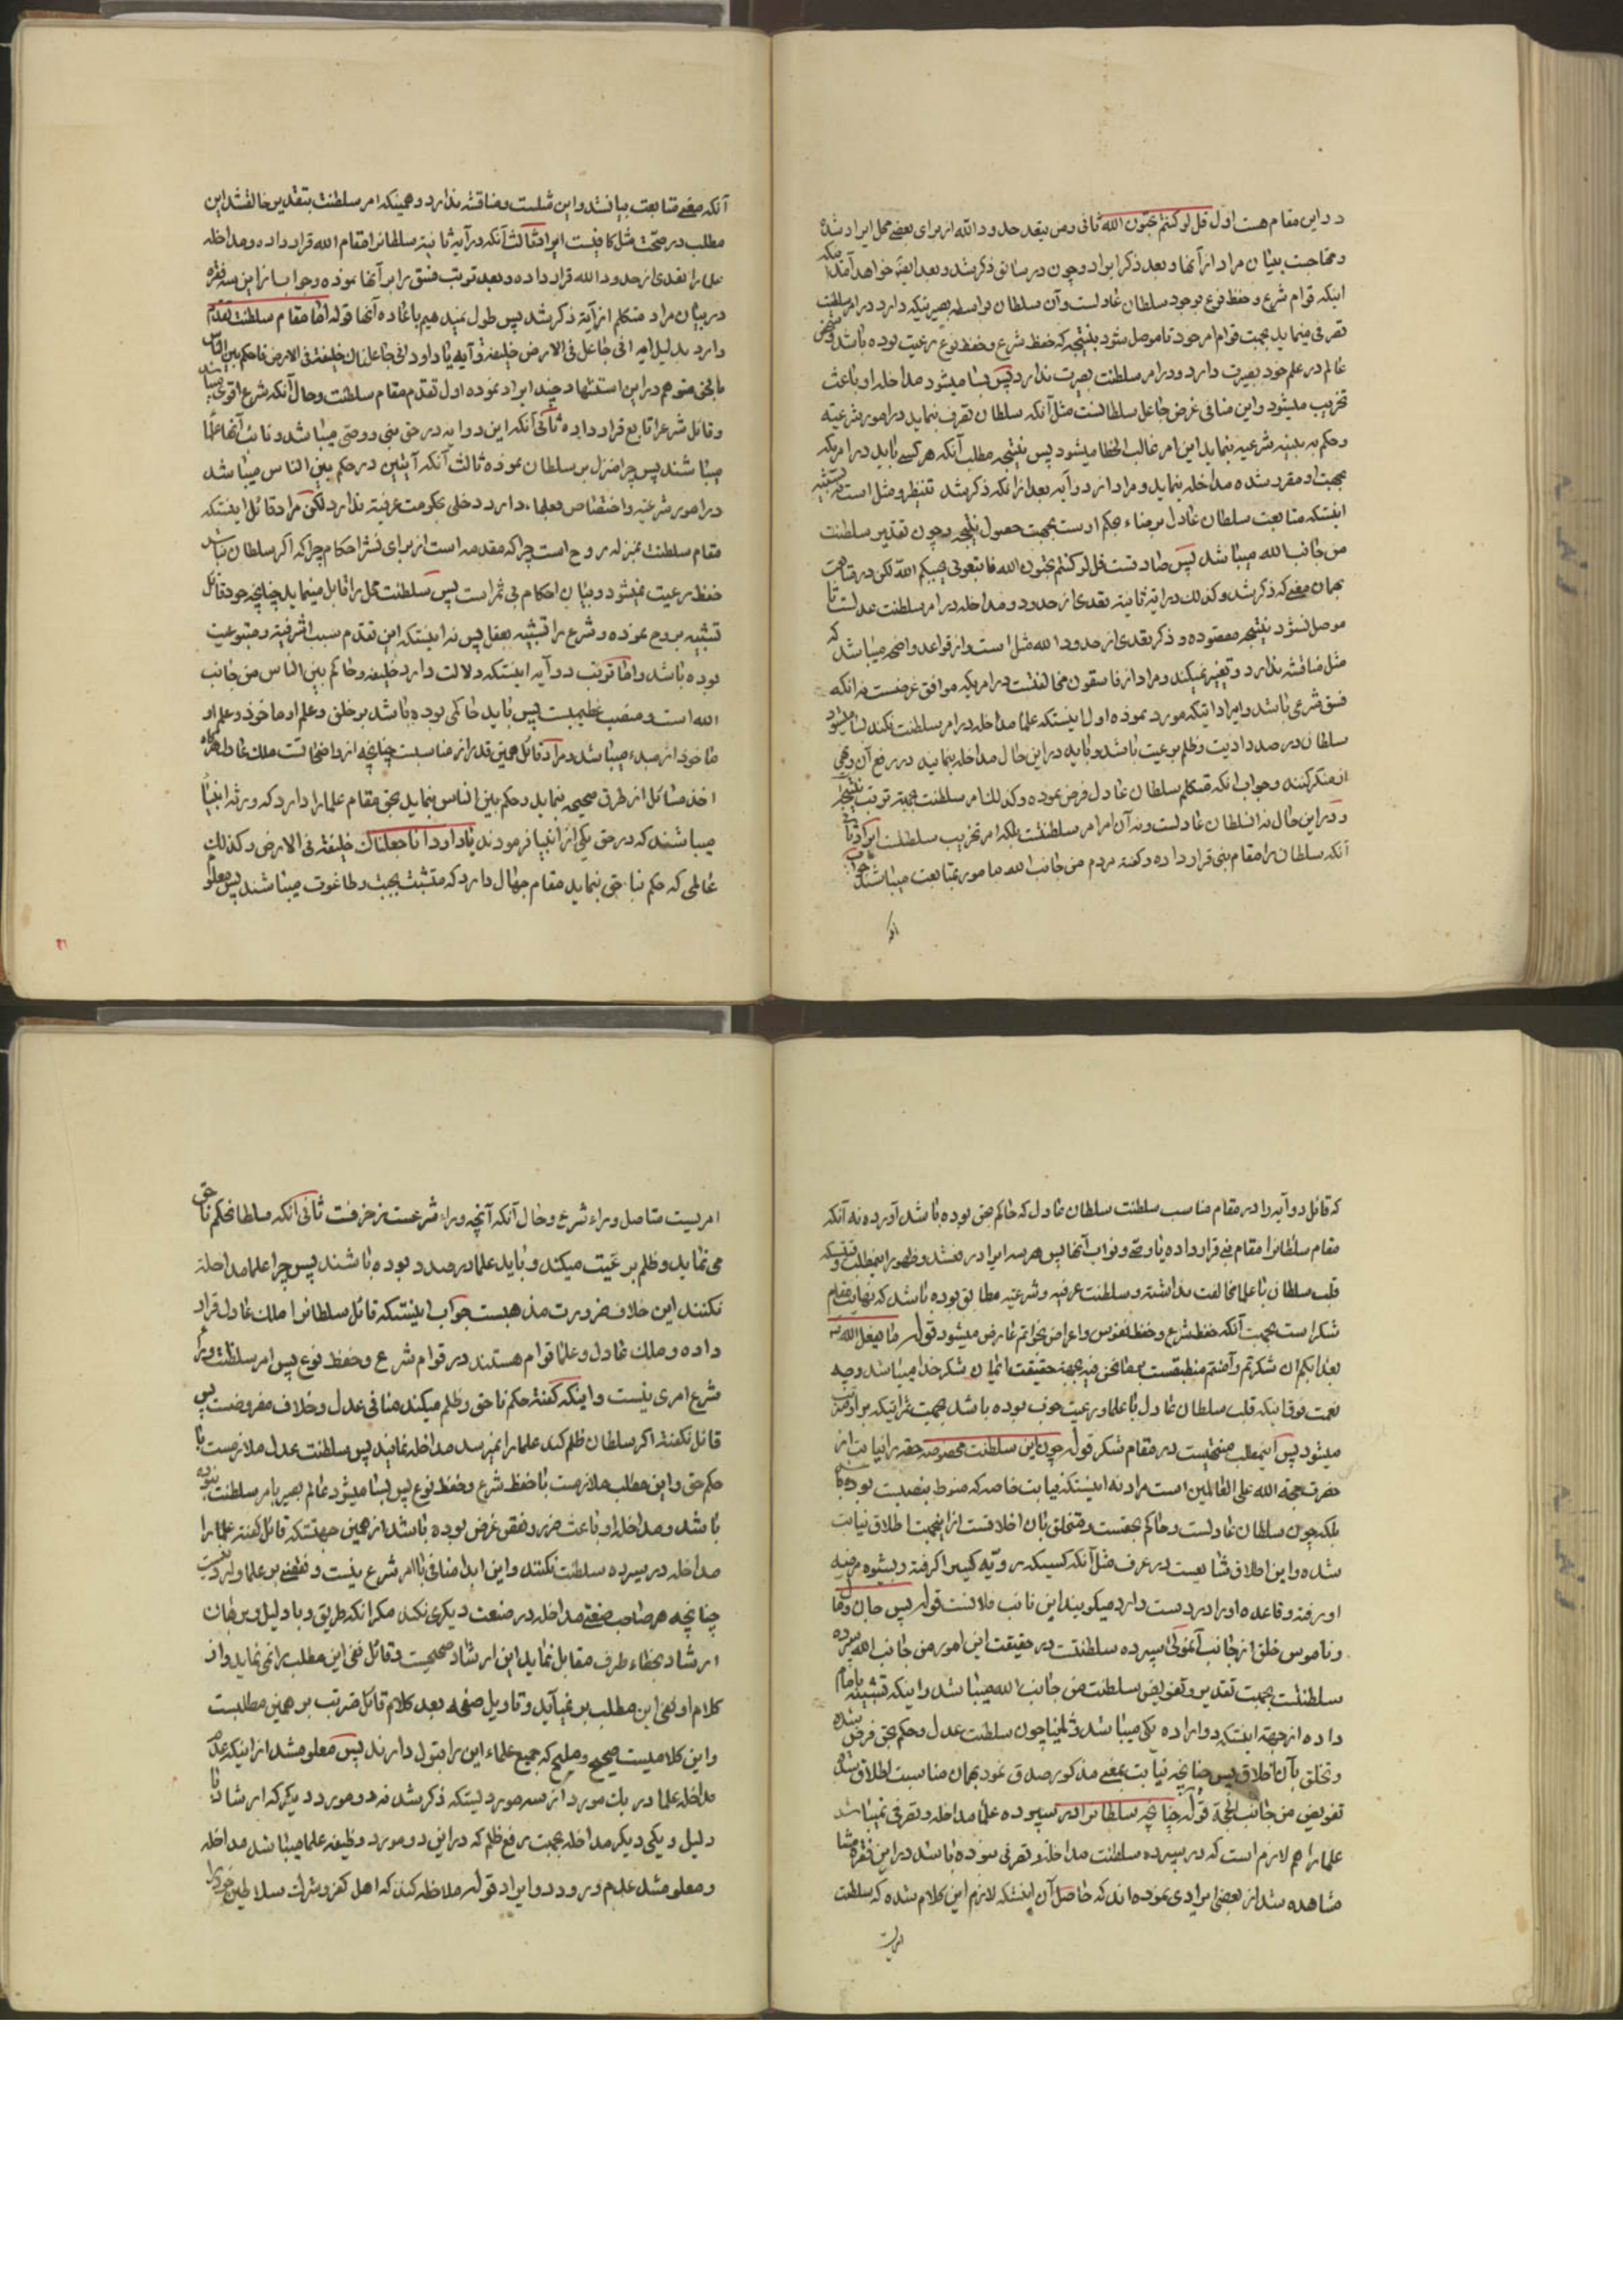 د دراین مقام هست اول قل لو کنتم تحبون الله ثانی ومن یتعد حدود الله از برای بعضی محل ایراد شده
ومحتاجست ببیان مراد از آنها و بعد ذکر ایراد وچون در سابق ذکر شد وبعد ایضا خواهد آمد
اینکه قوام شرع وحفظ نوع بوجود سلطان عادلست وآن سلطان بواسطه بصیرتیکه دارد در امر سلطنت
تصرفی مینماید بجهت قوام امر خود تا موصل شود بنتیجه که حفظ شرع وحفظ نوع رعیت بوده باشد
عالم در علم خود بصیرت دارد ودر امر سلطنت بصیرت ندارد پس بسا میشود مداخله او باعث
تخریب میشود واین منافی غرض جاعل سلطانست مثل آنکه سلطان تصرف نماید در امور شرعیه
وحکم به بینه شرعیه بنماید این امر غالب الخطا میشود پس نتیجه مطلب آنکه هر کسی باید در امریکه
بجهت او مقرر شده مداخله بنماید ومراد از دو آیه بعد از آنکه ذکر شد تنظیر ومثل است
اینستکه متابعت سلطان عادل بر مناء حکم اوست بجهت حصول نتیجه وچون تقدیر سلطنت
من جانب الله میباشد پس صادقست قل لو کنتم تحبون الله فاتبعونی یحببکم الله لکن در متابعت
بهمان معنی که ذکر شد وکذلك در آیه ثانیه تعدی از حدود ومداخله در امر سلطنت عدلست تا
موصل نشود بنتیجه مقصوده وذکر تعدی از حدود الله مثل است واز قواعد واضحه میباشد که
مثل مناقشه ندارد وتغییر نمیکند ومراد از فاسقون مخالفتست در امریکه موافق غرضست نه آنکه
فسق شرعی باشد وایراداتیکه مورد نموده اول اینستکه علما مداخله در امر سلطنت نکند بسا میشود
سلطان در صدد اذیت وظلم برعیت باشد وباید در این حال مداخله بنمایند در رفع آن ونهی
از منکر کنند وجواب آنکه متکلم سلطان عادل فرض نموده وکذلك امر سلطنت بجهة ترتب نتیجه
ودر این حال نه سلطان عادلست ونه آن امر امر سلطنتست بلکه امر تخریب سلطنتست ایراد ثانی
آنکه سلطان را مقام نبی قرار داده وگفته مردم من جانب الله مامور بمتابعت میباشند جواب
آنکه
آنکه معنی متابعت بیان شد واین مثلست ومناقشه ندارد وهمینکه امر سلطنت بتقدیر خالقشد این
مطلب در صحت مثل کافیست ایراد ثالث آنکه در آیه ثانیه سلطانرا مقام الله قرار داده ومداخله
علما را تعدی از حدود الله قرار داده وبعد ترتب فسق را بر آنها نموده وجواب از این سه فقره
در بیان مراد متکلم از آیه ذکر شد پس طول نمیدهیم باعاده آنها قوله اما مقام سلطنت تقدم
دارد بدلیل آیه انی جاعل فی الارض خلیفة وآیه یا داود انی جاعلناك خلیفة فی الارض فاحکم بین الناس
بالحق متوهم در این استشهاد چند ایراد نموده اول تقدم مقام سلطنت وحال آنکه شرع اقوی میباشد
وقائل شرع را تابع قرار داده ثانی آنکه این دو آیه در حق نبی ووصی میباشد ونائب آنها علما
میباشند پس چرا منزل بر سلطان نموده ثالث آنکه آیتین در حکم بین الناس میباشد
در امور شرعیه واختصاص بعلماء دارد دخلی بحکومت عرفیه ندارد لکن مراد قائل اینستکه
مقام سلطنت بمنزله روح است چرا که مقدمه است از برای نشر احکام چرا که اگر سلطان نباشد
حفظ رعیت نمیشود وبیان احکام بی ثمر است پس سلطنت محل را قابل مینماید چنانچه خود قائل
تشبیه بروح نموده وشرع را تشبیه بعقل پس نه اینستکه این تقدم سبب اشرفیة ومتبوعیت
بوده باشد واما ترتب دو آیه اینستکه دلالت دارد خلیفه وحاکم بین الناس من جانب
الله است ومنصب عظیمیست پس باید حاکی بوده باشد بر خلق وعلم او ماخوذ وعلم او
ماخوذ از مبدء میباشد ومراد قائل همین قدر از مناسبت چنانچه از واضحاتست ملك عادل هرگاه
اخذ مسائل از طرق صحیحه بنماید وحکم بین الناس بنماید بحق مقام علما را دارد که ورثه انبیاء
میباشند که در حق یکی از انبیا فرمودند یا داود انا جعلناك خلیفة فی الارض وکذلك
عالمی که حکم بنا حق بنماید مقام جهال دارد که متشبث بجبت وطاغوت میباشند پس معلوم
که قائل دو آیه را در مقام مناسب سلطنت سلطان عادل که حاکم بحق بوده باشد آورده نه آنکه
مقام سلطانرا مقام نبی قرار داده یا وصی ونواب آنها پس هر سه ایراد رفع شد وظهور این مطلب وقتیستکه
قلب سلطان با علما مخالفت نداشته وسلطنت عرفیه وشرعیه مطابق بوده باشد که نهایت مقام
شکر است بجهت آنکه حفظ شرع وحفظ نفوس واعراض بخواتم عارض میشود قوله ما یفعل الله
بعذابکم ان شکرتم وآمنتم منطبقست بما نحن فیه بجهة حقیقت ایمان شکر خدا میباشد وچه
نعمت فوق اینکه قلب سلطان عادل با علما ورعیت خوب بوده باشد بجهت ثمراتیکه بر او مترتب
میشود پس این مطلب صحیحیست در مقام شکر قوله چون این سلطنت مخصوصه حقه را نیابت از
حضرت حجة الله علی العالمین است مراد نه اینستکه نیابت خاصه که منوط بنصبیست بوده باشد
بلکه چون سلطان عادلست وحاکم بحقست ومتخلق بآن اخلاقست از این جهت اطلاق نیابت
شده واین اطلاق شایعست در عرف مثل آنکه کسیکه رویه کسیرا گرفته وبشیوه مرضیه
او رفته وقاعده او را در دست دارد میگویند این نائب فلانست قوله پس جان ومال
وناموس خلق از جانب آنمولی سپرده سلطنتست در حقیقت این امور من جانب الله سپرده
سلطنتست بجهت تقدیر وتفویض سلطنت من جانب الله میباشد واینکه تشبیه بامام
داده از جهة اینستکه دو اراده یکی میباشد فلهذا چون سلطنت عدل وحکم بحق فرض شده
وتخلق بآن اخلاق پس چنانچه نیابت بمعنی مذکور صدق نمود بهمان مناسبت اطلاق شده
تفویض من جانب الحجة قوله چنانچه سلطانرا در سپرده علما مداخله وتصرفی نمیباشد
علما را هم لازم است که در سپرده سلطنت مداخله وتصرفی نبوده باشد در این فقره
مشاهده شد از بعضی ایرادی نموده اند که حاصل آن اینستکه لازم این کلام شده که سلطنت
امریست
امریست متاصل وراء شرع وحال آنکه آنچه وراء شرعست مزخرفست ثانی آنکه سلطانحکم ناحق
می نماید وظلم بر رعیت میکند وباید علما در صدد بوده باشند پس چرا علما مداخله
نکنند این خلاف ضرورت مذهبست جواب اینستکه قائل سلطانرا ملك عادل قرار
داده وملك عادل وعلما قوام هستند در قوام شرع وحفظ نوع پس امر سلطنت وراء
شرع امری نیست واینکه گفته حکم ناحق وظلم میکند منافی عدل وخلاف مفروضست پس
قائل نگفته اگر سلطان ظلم کند علما را نمیرسد مداخله نمایند پس سلطنت عدل ملازمست با
حکم حق واین مطلب ملازمست با حفظ شرع وحفظ نوع پس بسا میشود عالم بصیر بامر سلطنت نبوده
باشد ومداخله او باعث ضرر ونقض غرض بوده باشد از همین جهتستکه قائل گفته علما را
مداخله در سپرده سلطنت نکنند واین ابدا منافی با امر شرع نیست ونقصی بر علما وارد نیست
چنانچه هر صاحب صنعتی مداخله در صنعت دیگری نکند مگر آنکه طریق وبا دلیل وبرهان
ارشاد بخطاء طرف مقابل نماید این ارشاد صحیحست وقائل نفی این مطلب را نمی نماید واز
کلام او نفی این مطلب بر نمیآید وتاویل صفحه بعد کلام قائل مترتب بر همین مطلبست
واین کلامیست صحیح وملیح که جمیع علماء این را قبول دارند پس معلوم شد از اینکه عدم
مداخله علما در یك مورد از سه موردیستکه ذکر شد نه دو مورد دیگر که ارشاد با
دلیل ویکی دیگر مداخله بجهت رفع ظلم که در این دو مورد وظیفه علما میباشد مداخله
ومعلوم شد عدم ورود دو ایراد قوله ملاحظه کنند که اهل کفر وشرك سلاطین خود را